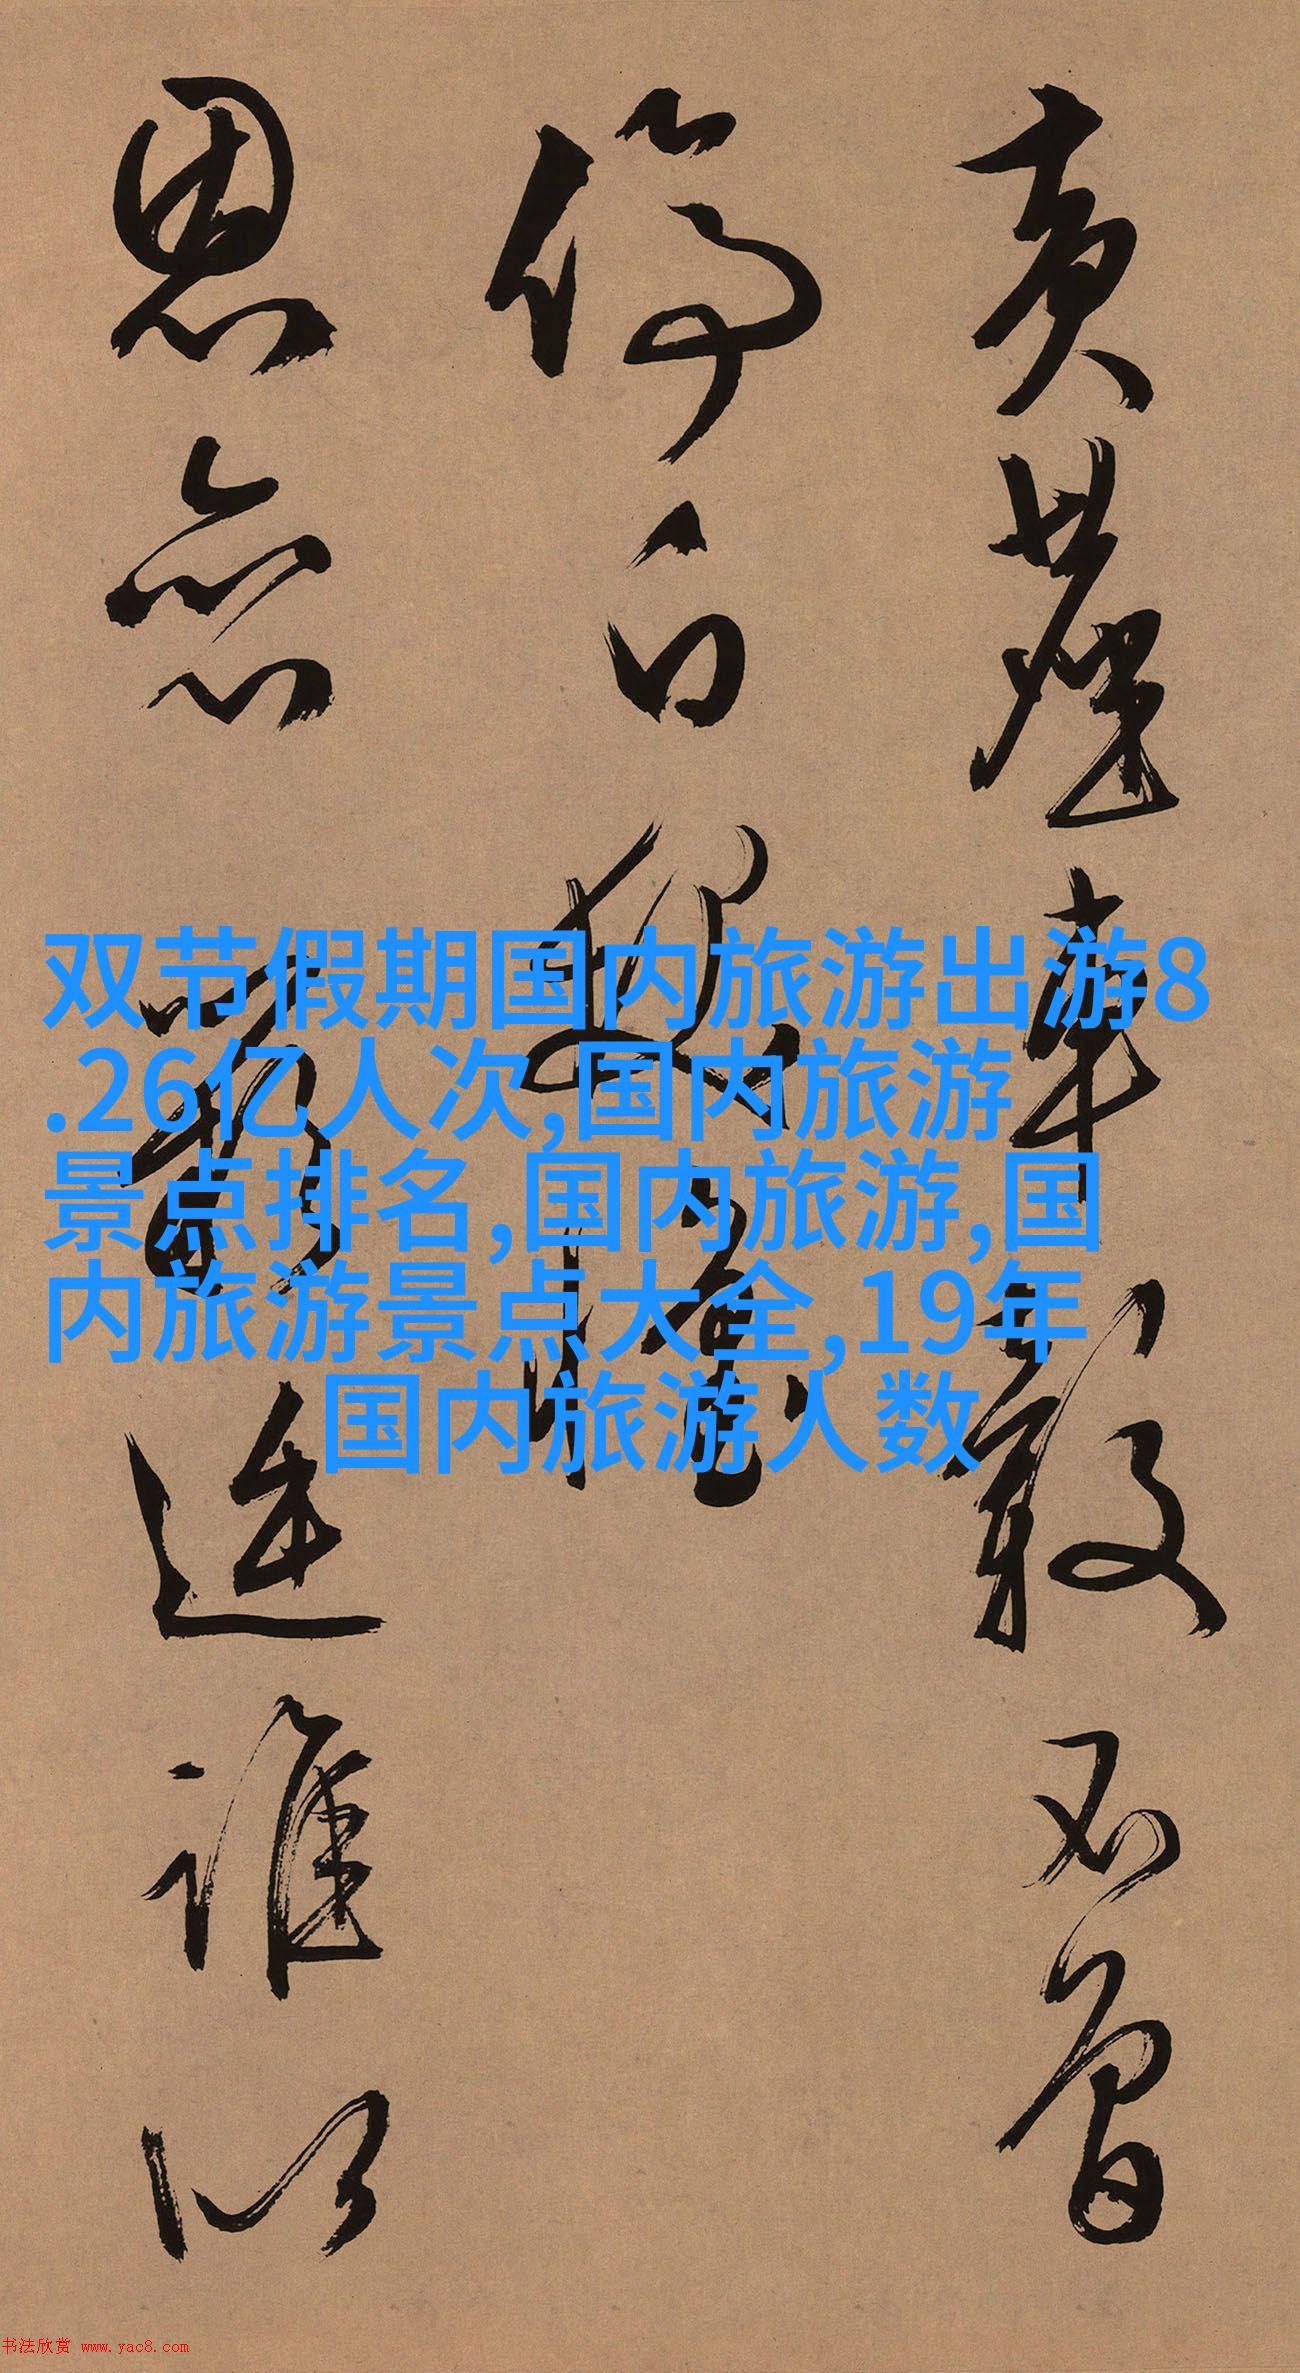 黄塵車轂不曾
停白髮
恩連誰以
双节假期国内旅游出游8
.26亿人次,国内旅游
景点排名,国内旅游,国
内旅游景点大全,19年
国内旅游人数
书法欣赏 www.yac8.com